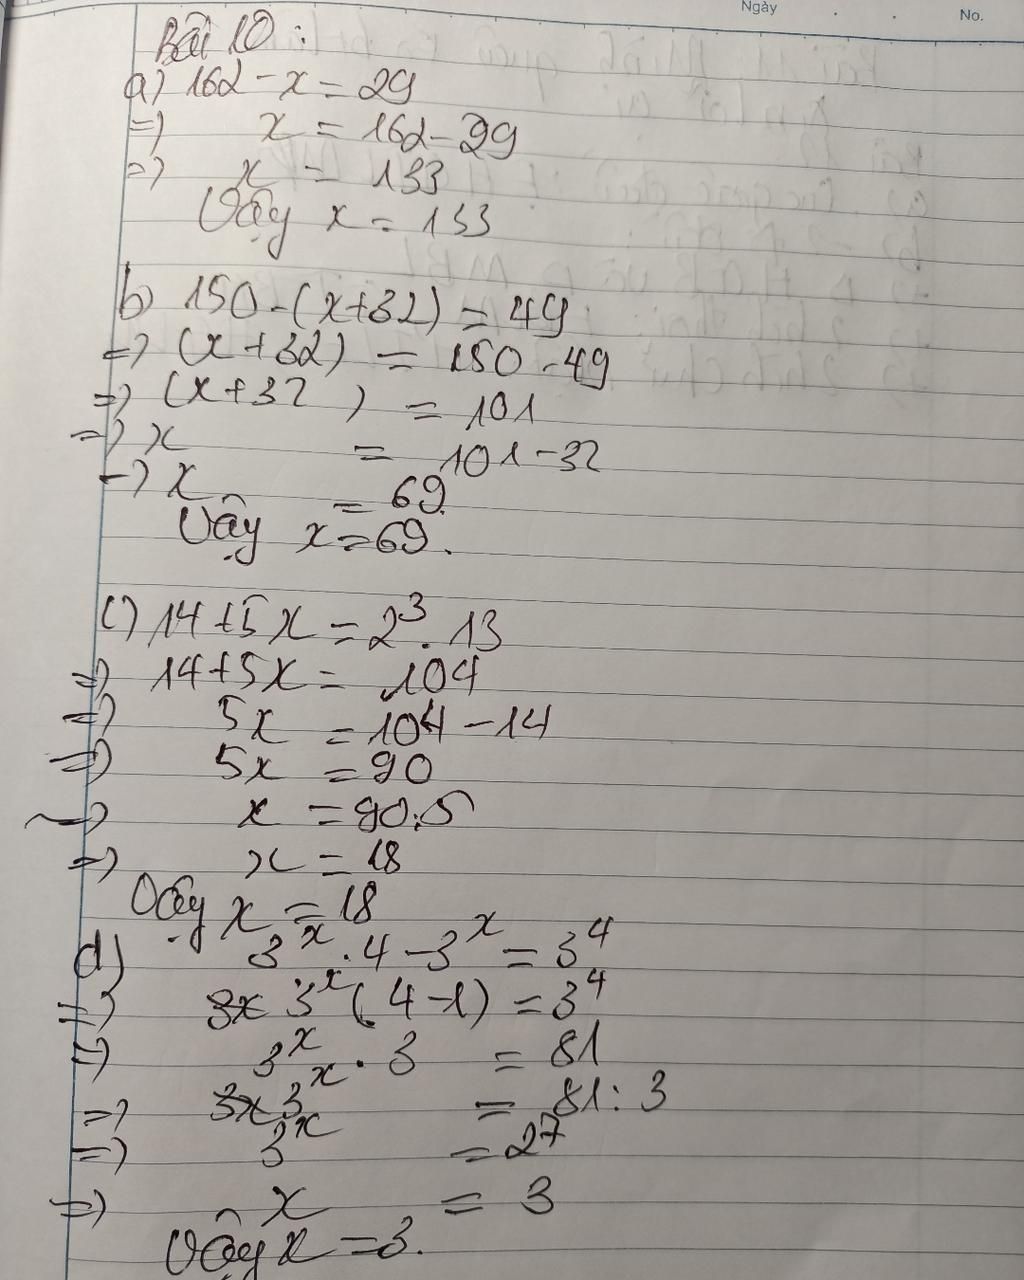 Ngày
No.
Bài 10:
a) 162 - x = 29
=) x = 162 - 29
=) x = 133
Vậy x = 133
b) 150 - (x + 32) = 49
=) (x + 32) = 150 - 49
=) (x + 32) = 101
=) x = 101 - 32
=) x = 69
Vậy x = 69.
c) 14 + 5x = 2³ . 13
=) 14 + 5x = 104
=) 5x = 104 - 14
=) 5x = 90
=) x = 90:5
=) x = 18
Vậy x = 18
d) 3ˣ . 4 - 3ˣ = 3⁴
=) 3ˣ (4 - 1) = 3⁴
=) 3ˣ . 3 = 81
=) 3ˣ = 81 : 3
=) 3ˣ = 27
=) x = 3
Vậy x = 3.